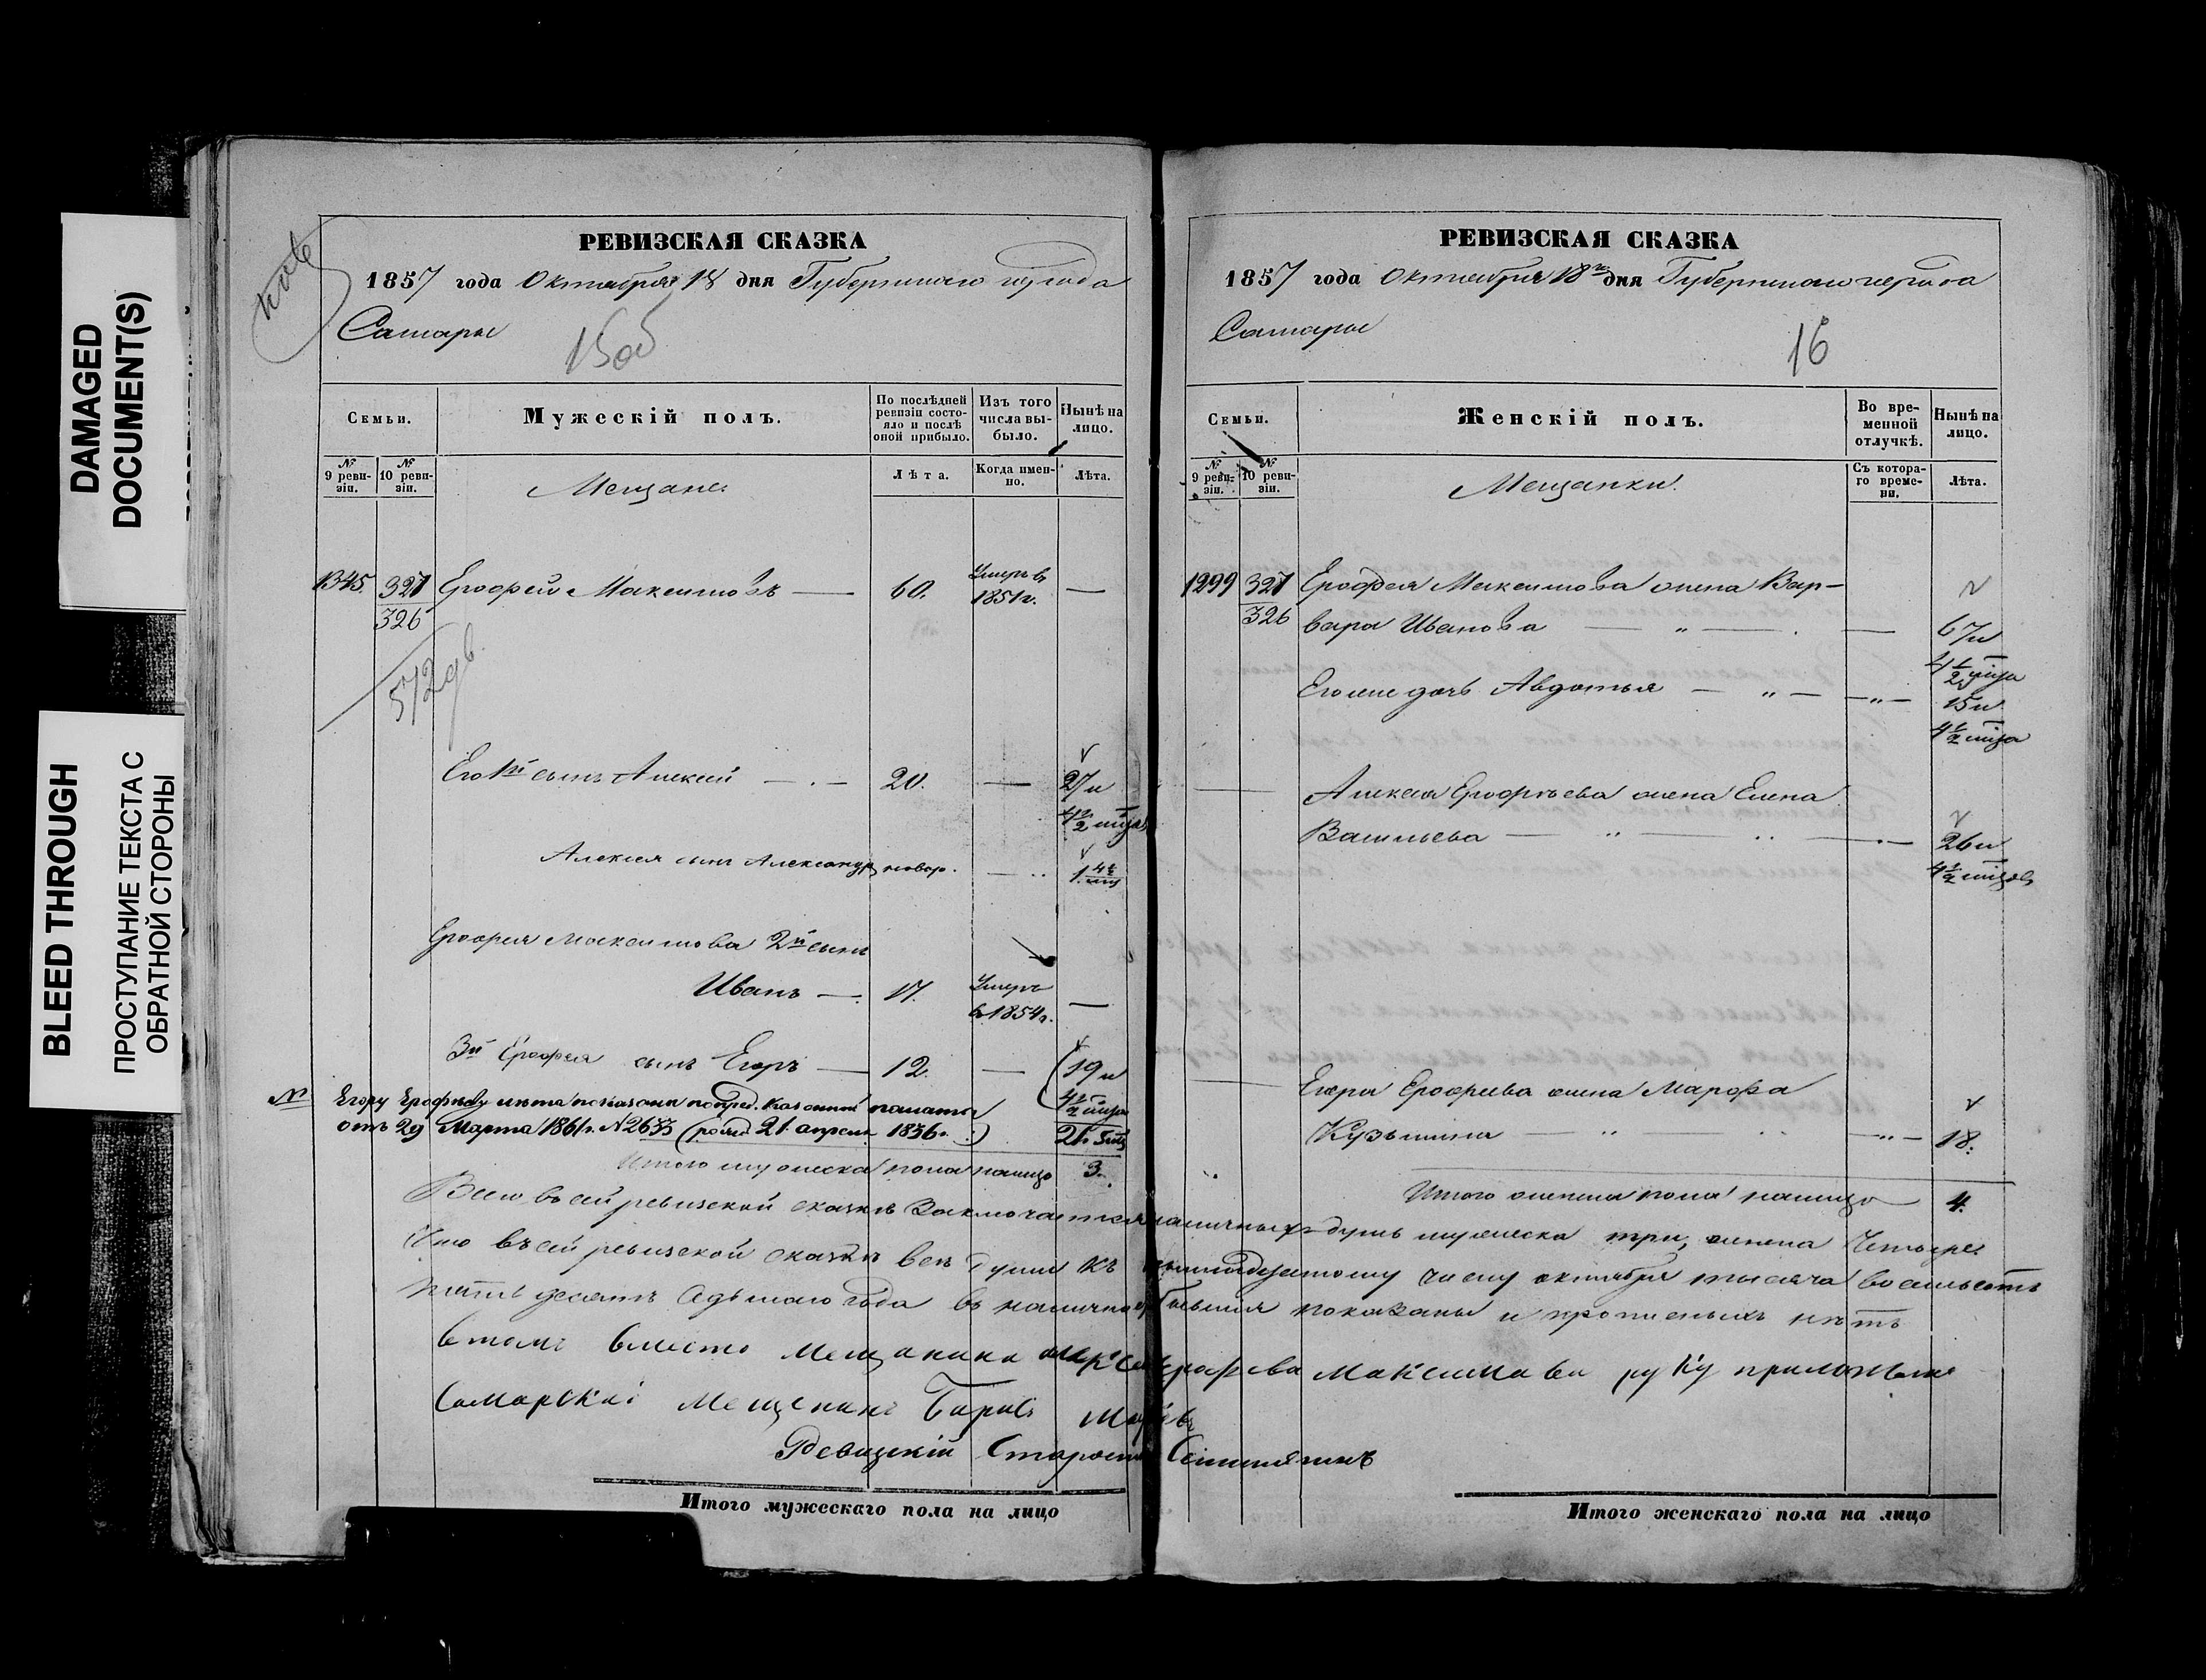 DAMAGED
DOCUMENT(S)
BLEED THROUGH
ПРОСТУПАНИЕ ТЕКСТА С
ОБРАТНОЙ СТОРОНЫ
РЕВИЗСКАЯ СКАЗКА
1857 года Октября 18 дня Губернскаго города
Самары
15об
Семьи.
Мужескій полъ.
По послѣдней ревизіи состояло и послѣ оной прибыло.
Изъ того числа выбыло.
Нынѣ на лицо.
№ 9 ревизіи.
№ 10 ревизіи.
Мещане
Лѣта.
Когда именно.
Лѣта.
1345. 327 Ерофей Максимовъ — 60. Умеръ въ 1851 г. —
326
572 дв.
Его 1й сынъ Алексѣй — 20. — 27 и
4 1/2 мѣсяц
Алексѣя сынъ Александръ новор. — 1. 4 1/2 мѣс
Ерофея Максимова 2й сынъ
Иванъ — 17. Умеръ въ 1854 г. —
3й Ерофея сынъ Егоръ — 12. — 19 и
4 1/2 мѣсяца
№ Егору Ерофѣеву лѣта показаны по пред. Казенной палаты
отъ 29 Марта 1861 г. № 2635 (рожд. 21 апреля 1836 г.) 21 г. 5 мѣс
Итого мужеска пола налицо 3.
РЕВИЗСКАЯ СКАЗКА
1857 года Октября 18го дня Губернскаго города
Самары
16
Семьи.
Женскій полъ.
Во временной отлучкѣ.
Нынѣ на лицо.
№ 9 ревизіи.
№ 10 ревизіи.
Мещанки.
Съ котораго времени.
Лѣта.
1299 327 Ерофея Максимова жена Вар-
326 вара Иванова — " — . — 67 и
4 1/2 мѣсяца
Его же дочь Авдотья — " — — " — 15 и
4 1/2 мѣсяца
Алексѣя Ерофѣева жена Елена
Васильева — " — " — 26 и
4 1/2 мѣсяцъ
Егора Ерофѣева жена Марфа
Кузьмина — " " — " — 18.
Итого женска пола налицо 4.
Всего въ сей ревизской сказкѣ заключается наличныхъ душъ мужеска три, женска четыре
Что въ сей ревизской сказкѣ всѣ души къ восемнадцатому числу октября тысяча восемьсотъ
пятьдесятъ седьмаго года въ наличности бывшія показаны и прописныхъ нѣтъ
втомъ вместо мещанина Алексея Ерафева Максимава руку приложилъ
Самарскаі Мещенинъ Барисъ
Ревизскій Староста
Итого мужескаго пола на лицо
Итого женскаго пола на лицо